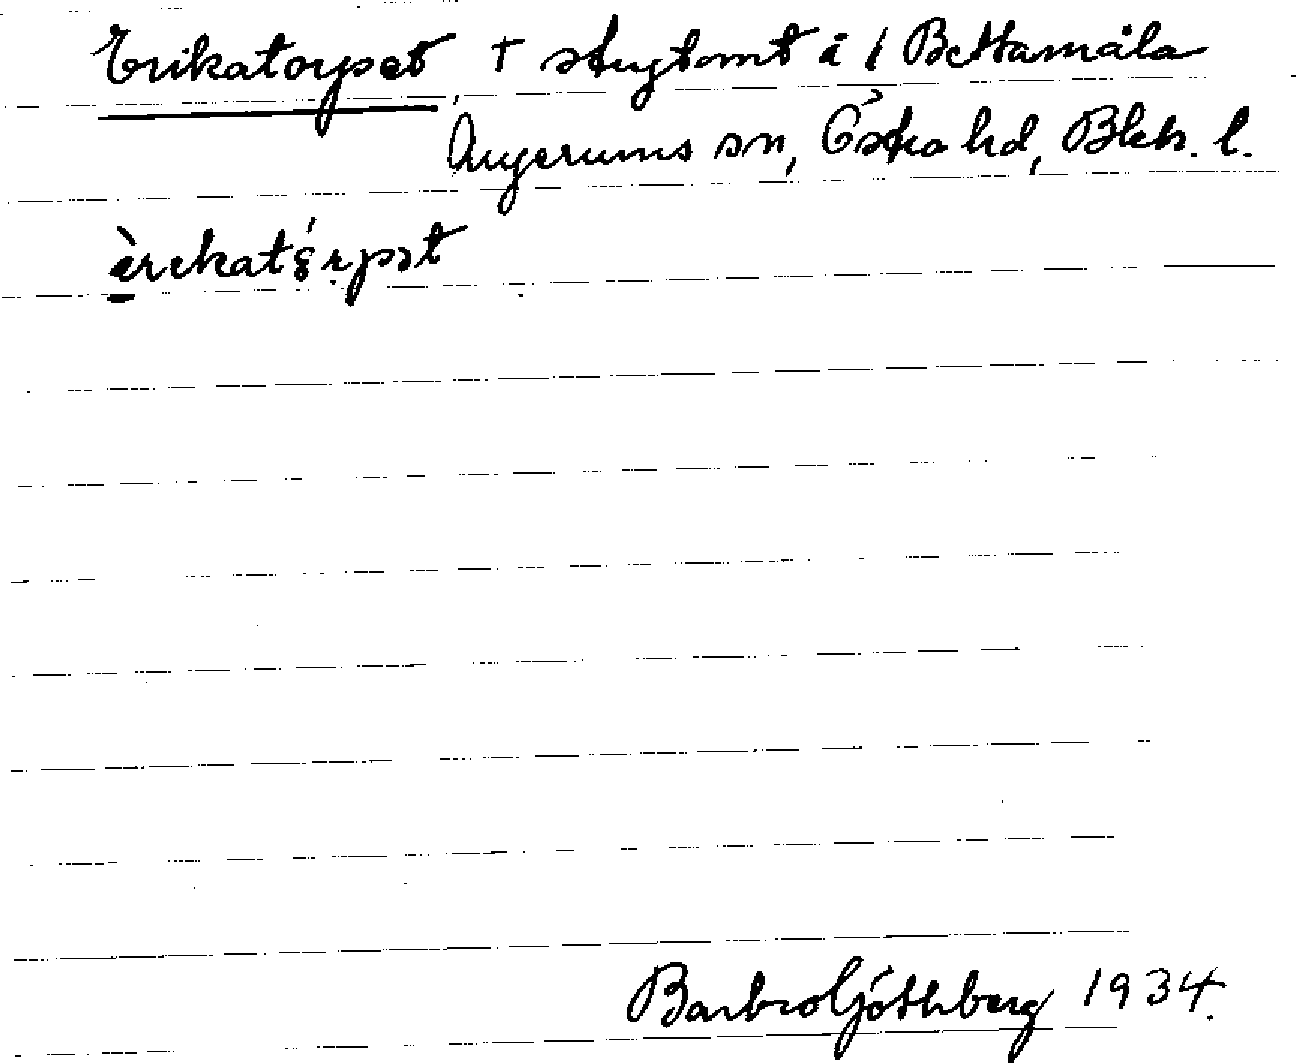 Erikatorpet † stugtomt å 1 Bettamåla
Augerums sn, Östra hd, Blek. l.
èrekatǫ́rpət
Barbro Göthberg 1934.